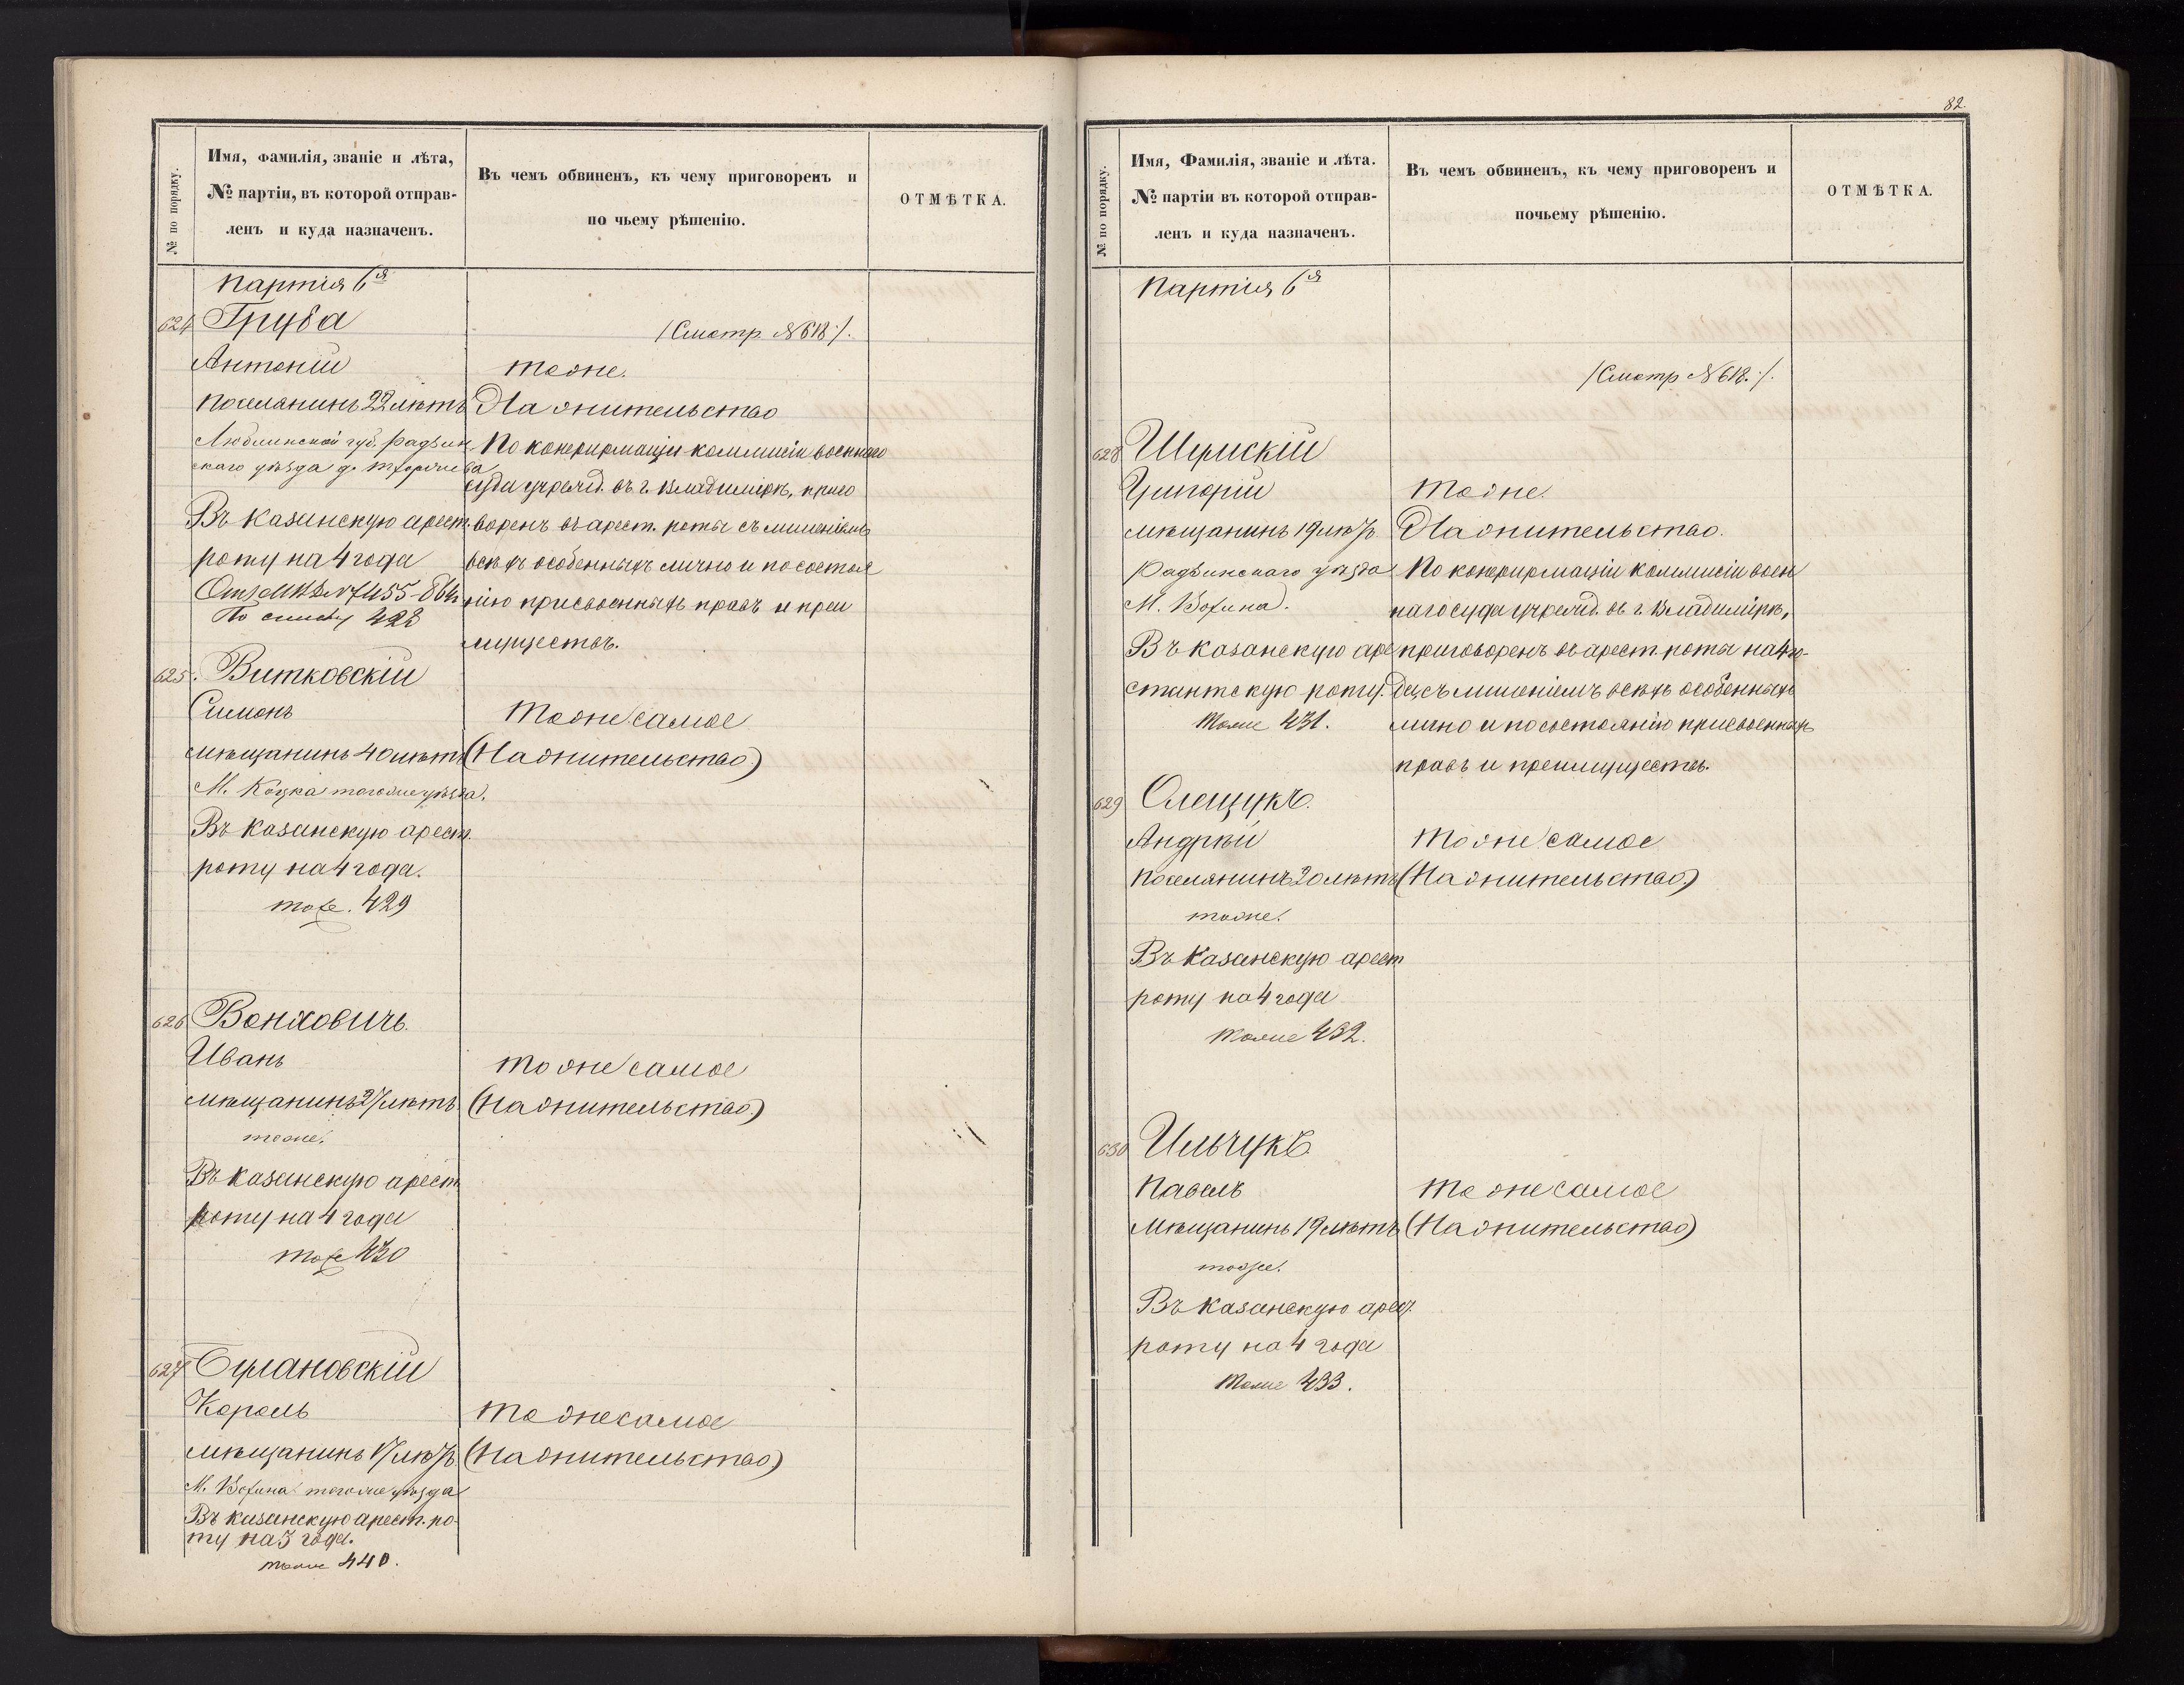 № по порядку.
Имя, Фамилія, званіе и лѣта,
№ партіи, въ которой отправ-
ленъ и куда назначенъ.
Въ чемъ обвиненъ, къ чему приговоренъ и
по чьему рѣшенію.
ОТМѢТКА.
Партія 6я
624 Груба
/Смотр №618:/.
Антоній
тоже.
поселянинъ 22 лѣтъ
На жительство
Люблинской губ. Радзин
скаго уѣзда д.
По конфирмаціи коммисіи военнаго
суда учрежд. въ г. Владимірѣ, приго
Въ Казанскую арест.
воренъ въ арест. роты съ лишеніемъ
роту на 4 года
всѣхъ особенныхъ лично и по состоя
нію присвоенныхъ правъ и преи
По списку 428
муществъ.
625. Витковскій
Симонъ
тоже самое
мѣщанинъ 40 лѣтъ
(На жительство)
М. Коцка тогоже уѣзда.
Въ Казанскую арест.
роту на 4 года.
тоже. 429
626 Вонховичъ.
Иванъ
тоже самое
мѣщанинъ 27 лѣтъ
(На жительство.)
тоже.
Въ Казанскую арест
роту на 4 года
тоже 430
627
Король
тоже самое
мѣщанинъ 17 лѣтъ.
(На жительство)
М. Вохина тогоже уѣзда
Въ Казанскую арест. ро-
ту на 3 года.
тоже 440.
82.
№ по порядку.
Имя, Фамилія, званіе и лѣта.
№ партіи въ которой отправ-
ленъ и куда назначенъ.
Въ чемъ обвиненъ, къ чему приговоренъ и
почьему рѣшенію.
ОТМѢТКА.
Партія 6я
/Смотр №618.:/.
628 Шумскій
Григорій
тоже.
мѣщанинъ 19 лѣтъ
На жительство.
Радзинскаго уѣзда
По конфирмаціи коммисіи воен
М. Вохина.
наго суда учрежд. въ г. Владимірѣ,
Въ Казанскую аре
приговоренъ въ арест. роты на 4 го-
стантскую роту.
да, съ лишеніемъ всѣхъ особенныхъ
тоже 431.
лично и по состоянію присвоенныхъ
правъ и преимуществъ.
629 Олещукъ.
Андрѣй
тоже самое
поселянинъ 20 лѣтъ
(На жительство.)
тоже.
Въ Казанскую арест
роту на 4 года
тоже 432.
630 Ильчукъ
Павелъ
тоже самое
Мѣщанинъ 19 лѣтъ
(На жительство)
тоже.
Въ Казанскую арест.
роту на 4 года
тоже 433.